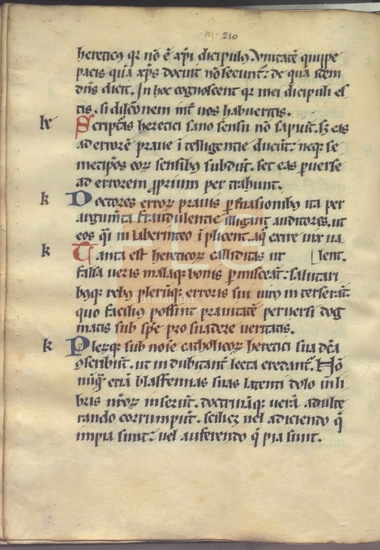 210
hereticꝰ qr nō ē xp̄i dicipulꝰ. Vnitatē quippe
pacis quā xp̄s docuit nō secunt̄. de qua idem
dn̄s dicit. In hoc cognoscent qr mei dicipuli es
tis. si dilc̄onem int̄ uos habueritis.
lx Scripturas heretici sano sensu nō sapiūt. s; eas
ad errorē praue intelligentie ducūt. neqꝫ se
metip̄sos eoꝝ sensibꝰ subdūt. set eas ꝑuerse
ad errorem ꝓprium per trahunt.
k Doctores erroꝝ prauis ꝑsuasionibꝰ ita per
argum̄ta fraudulentie illigant auditores. ut
eos q̄i in laberinteo īplicent. a quo exire uix ua
k Tanta est hereticoꝝ calliditas ut [lent.
falsa ueris malaqꝫ bonis ꝑmisceāt. salutari
bꝰqꝫ rebꝰ pleruqꝫ erroris sui uirꝰ in terserāt.
quo faciliꝰ possint prauitatē peruersi dog
matis sub spē ꝓ suadere ueritatis.
k Plerūqꝫ sub noīe catholicoꝝ heretici sua dc̄a
ꝯscribūt. ut indubitant̄ lecta credant̄. Nō
nūqꝫ etiā blasfemias suas latenti dolo in li
bris nr̄oꝝ inserūt. doctrināqꝫ uerā adulte
rando corrumpūt. scilicꝫ uel adiciendo q̄
impia sunt. uel auferendo q̄ pia sunt.